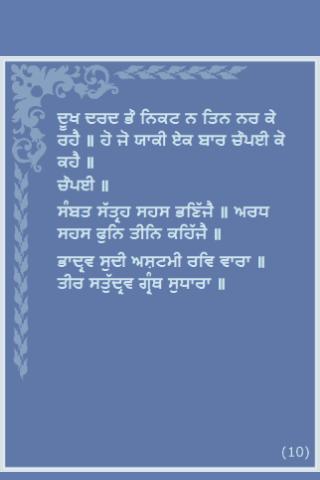 ਦੂਖ ਦਰਦ ਭੌ ਨਿਕਟ ਨ ਤਿਨ ਨਰ ਕੇ
ਰਹੈ ॥ ਹੋ ਜੋ ਯਾਕੀ ਏਕ ਬਾਰ ਚੌਪਈ ਕੋ
ਕਹੈ ॥
ਚੌਪਈ ॥
ਸੰਬਤ ਸੱਤ੍ਰਹ ਸਹਸ ਭਣਿੱਜੈ ॥ ਅਰਧ
ਸਹਸ ਫੁਨਿ ਤੀਨਿ ਕਹਿੱਜੈ ॥
ਭਾਦ੍ਰਵ ਸੁਦੀ ਅਸ਼ਟਮੀ ਰਵਿ ਵਾਰਾ ॥
ਤੀਰ ਸਤੁੱਦ੍ਰਵ ਗ੍ਰੰਥ ਸੁਧਾਰਾ ॥
(10)